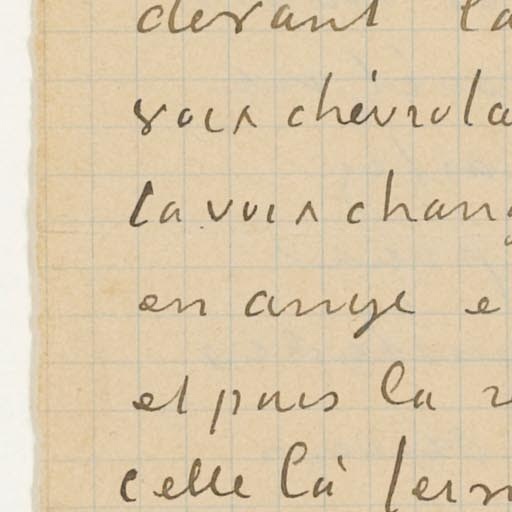 devant la
voix chevrola
la voix chang
en ange e
et puis la
celle là